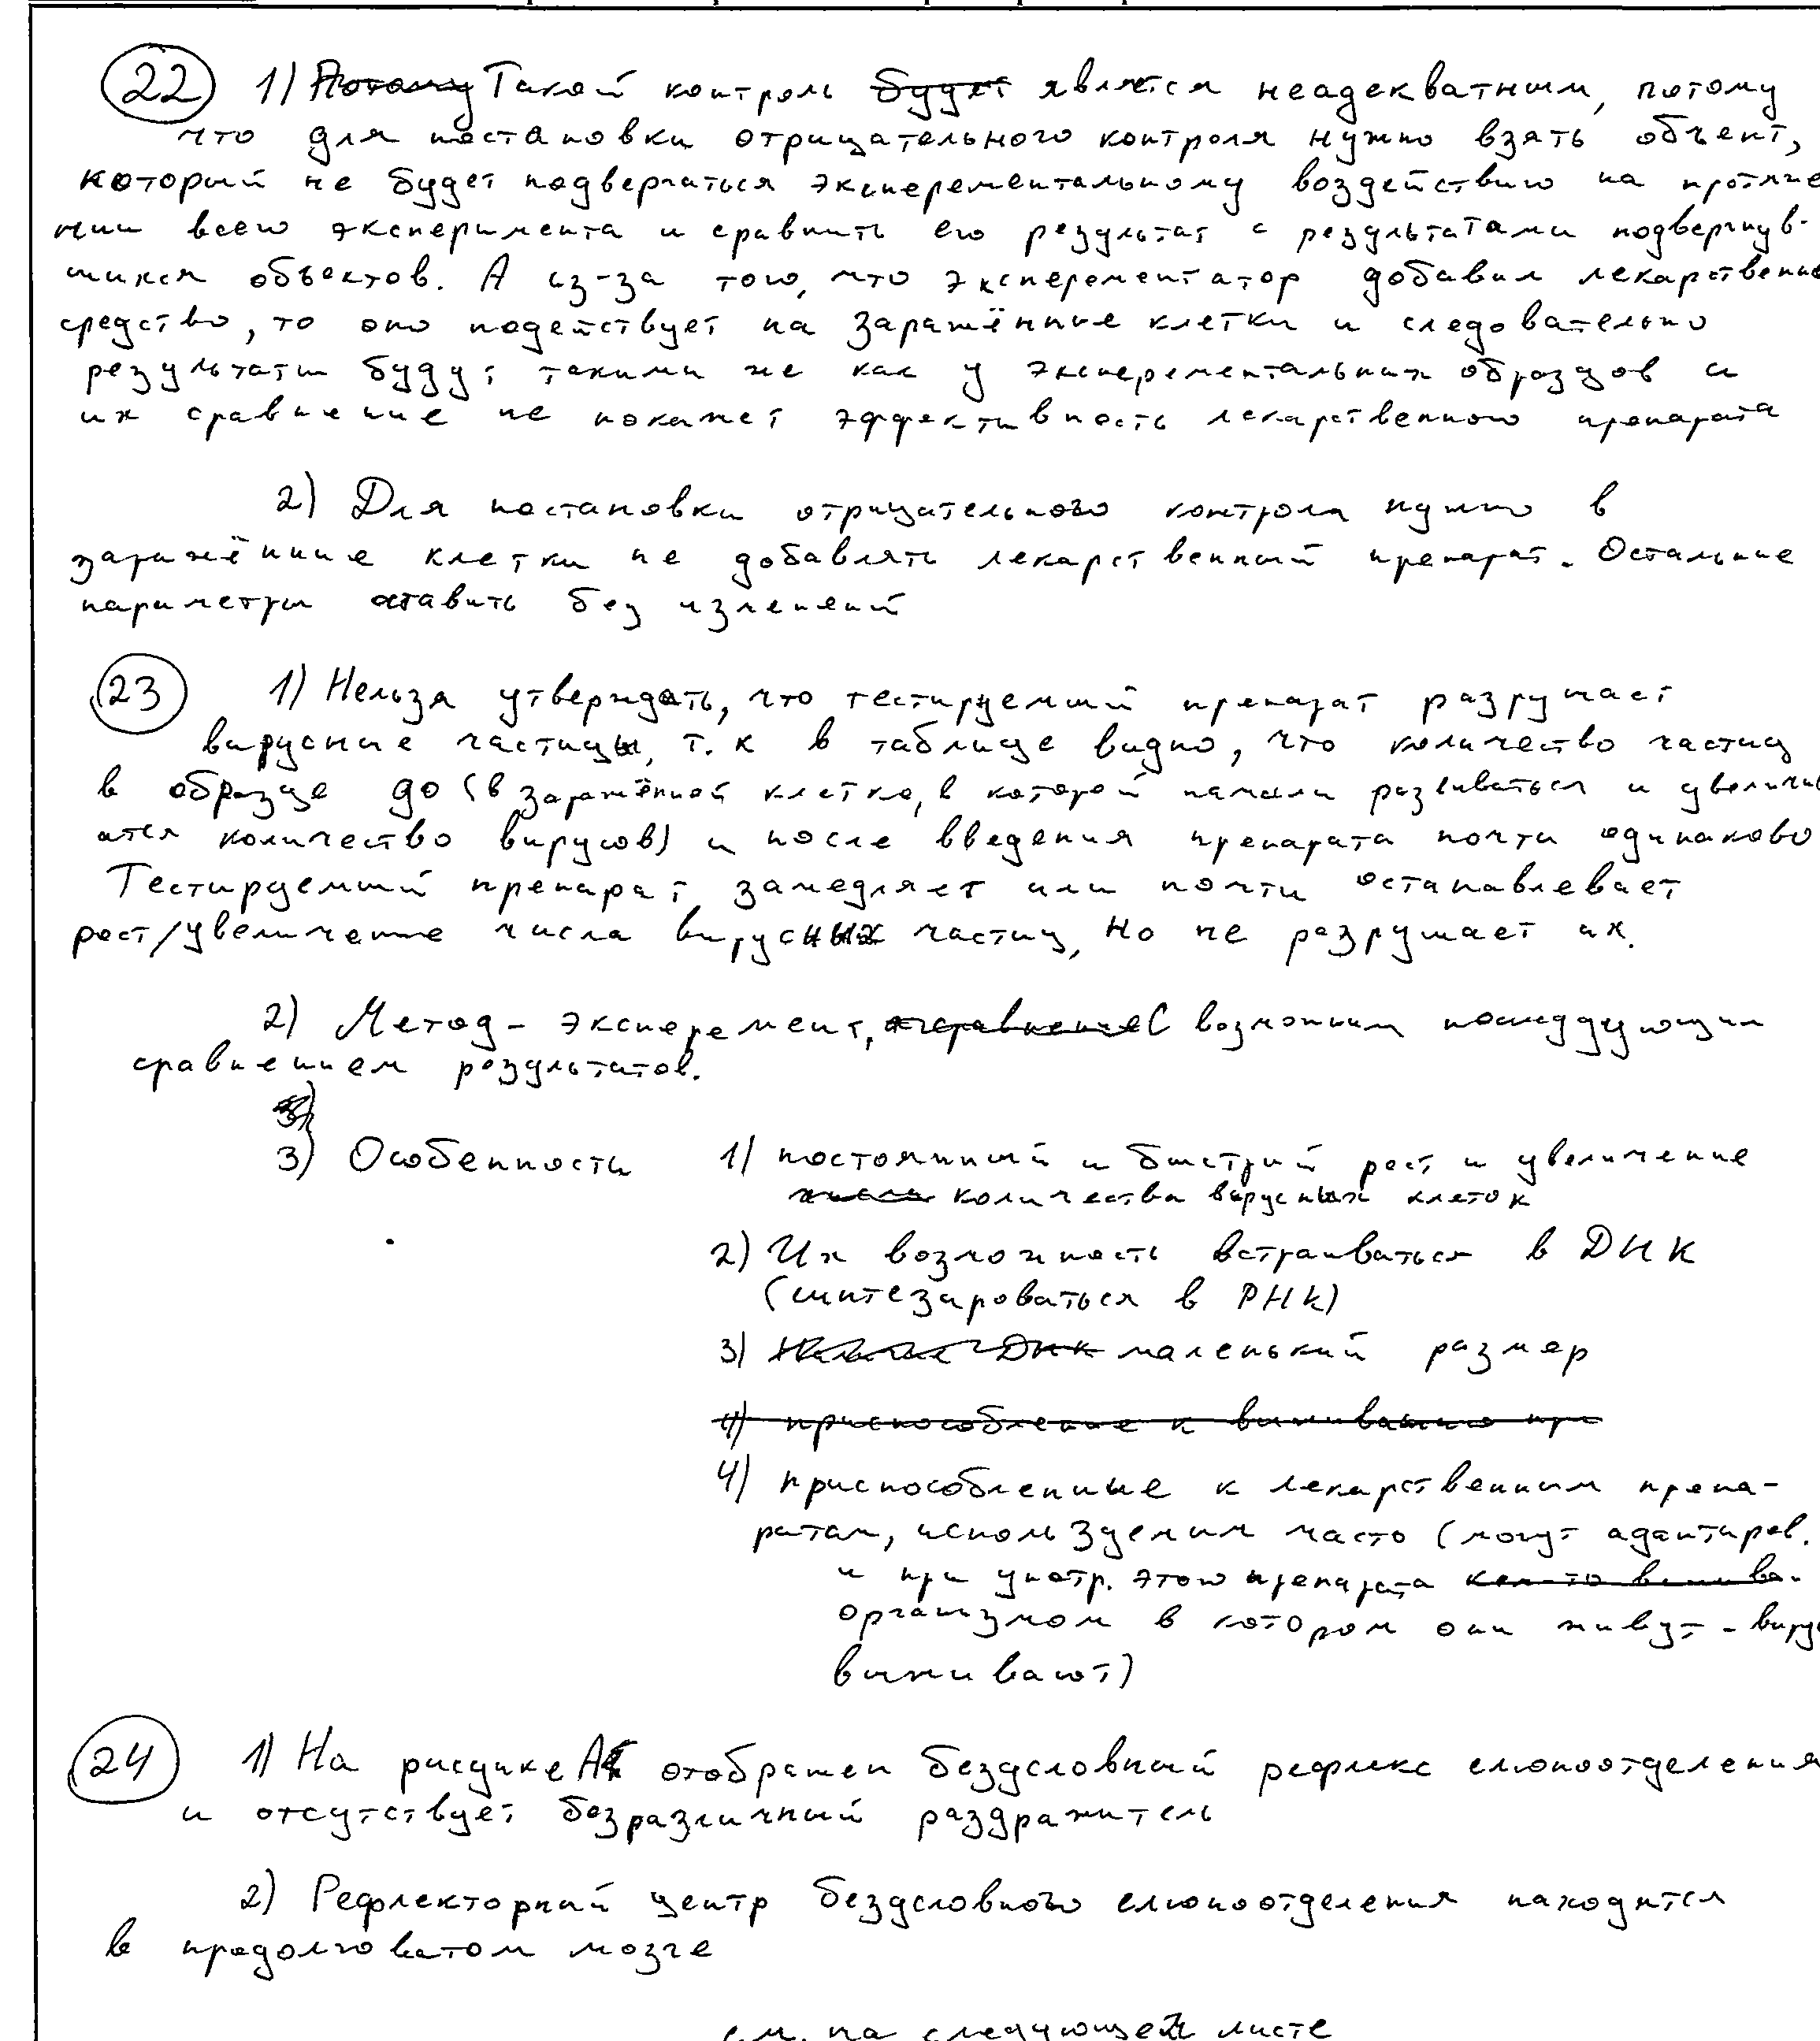 22 1) Потому Такой контроль будет является неадекватным, потому
что для постановки отрицательного контроля нужно взять объект,
который не будет подвергаться эксперементальному воздействию на протяже
нии всего эксперимента и сравнить его результат с результатами подвергнув-
шихся объектов. А из-за того, что эксперементатор добавил лекарственное
средство, то оно подействует на заражённые клетки и следовательно
результаты будут такими же как у эксперементальных образцов и
их сравнение не покажет эффективность лекарственного препарата
2) Для постановки отрицательного контроля нужно в
заражённые клетки не добавлять лекарственный препарат. Остальные
параметры оставить без изменений
23 1) Нельзя утверждать, что тестируемый препарат разрушает
вирусные частицы, т.к в таблице видно, что количество частиц
в образце до (в заражённой клетке, в которой начали развиваться и увеличив
ается количество вирусов) и после введения препарата почти одинаково
Тестируемый препарат замедляет или почти останавлевает
рост/увеличение числа вирусных частиц, но не разрушает их.
2) Метод - эксперемент, с возможным последующим
сравнением результатов.
3)
3) Особенности 1) постоянный и быстрый рост и увеличение
числа количества вирусных клеток
2) Их возможность встраиваться в ДНК
(синтезароваться в РНК)
3) ДНК маленький размер
4) приспособление к выживанию при
4) приспособленные к лекарственным препа-
ратам, используемым часто (могут адаптиров.
и при употр. этого препарата
организмом в котором они живут - виру
выживают)
24 1) На рисунке А отображен безусловный рефлекс слюноотделения
и отсутствует безразличный раздражитель
2) Рефлекторный центр безусловного слюноотделения находится
в продолговатом мозге
см. на следующем листе